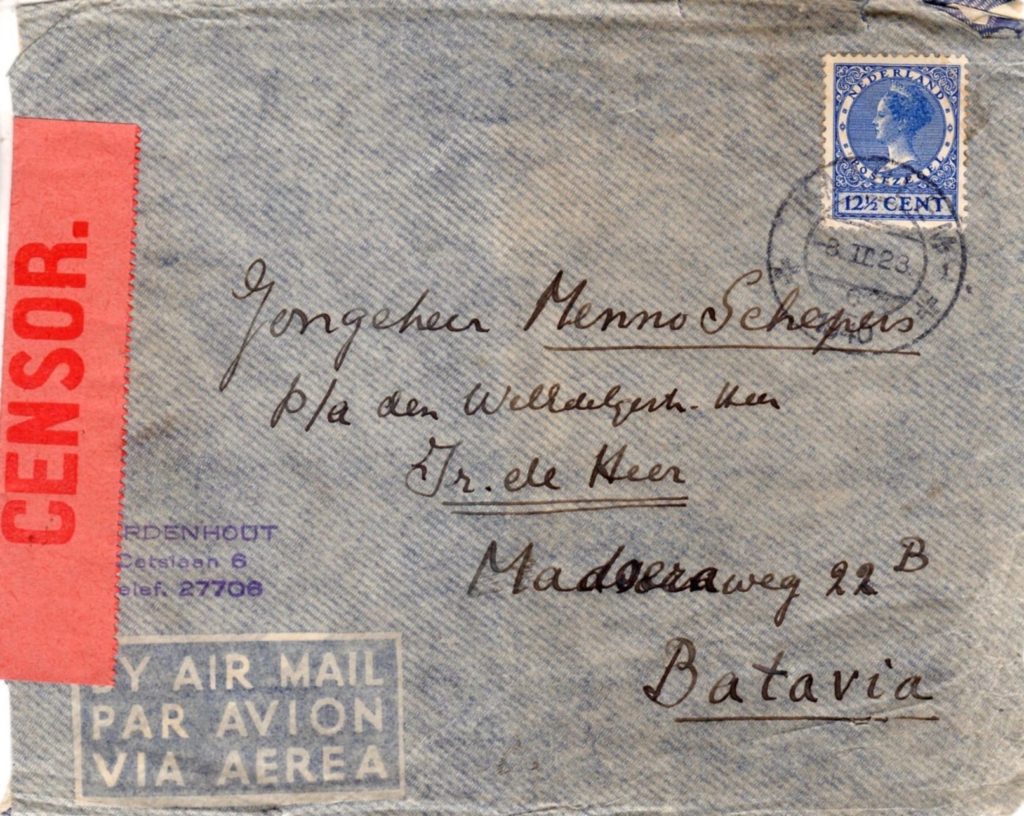 CENSOR.
NEDERLAND
POSTZEGEL
12½ CENT
-8.II.23.
1940
Jongeheer Menno Schepers
p/a den WelEdelgestr. Heer
Ir. de Heer
Madoeraweg 22 B
Batavia
RDENHOUT
Catslaan 6
elef. 27708
BY AIR MAIL
PAR AVION
VIA AEREA